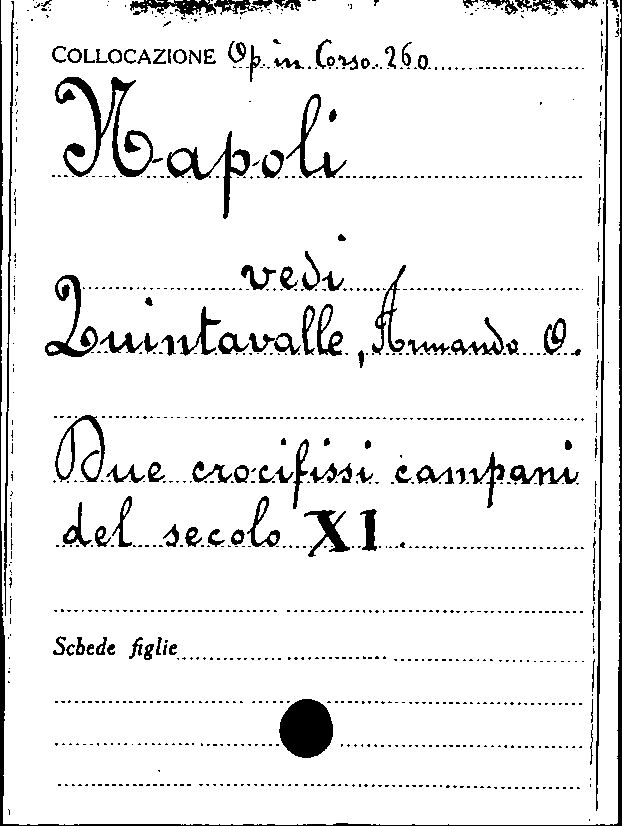 COLLOCAZIONE Op. in Corso. 260
Napoli
vedi
Quintavalle, Armando O.
Due crocifissi campani
del secolo XI.
Schede figlie